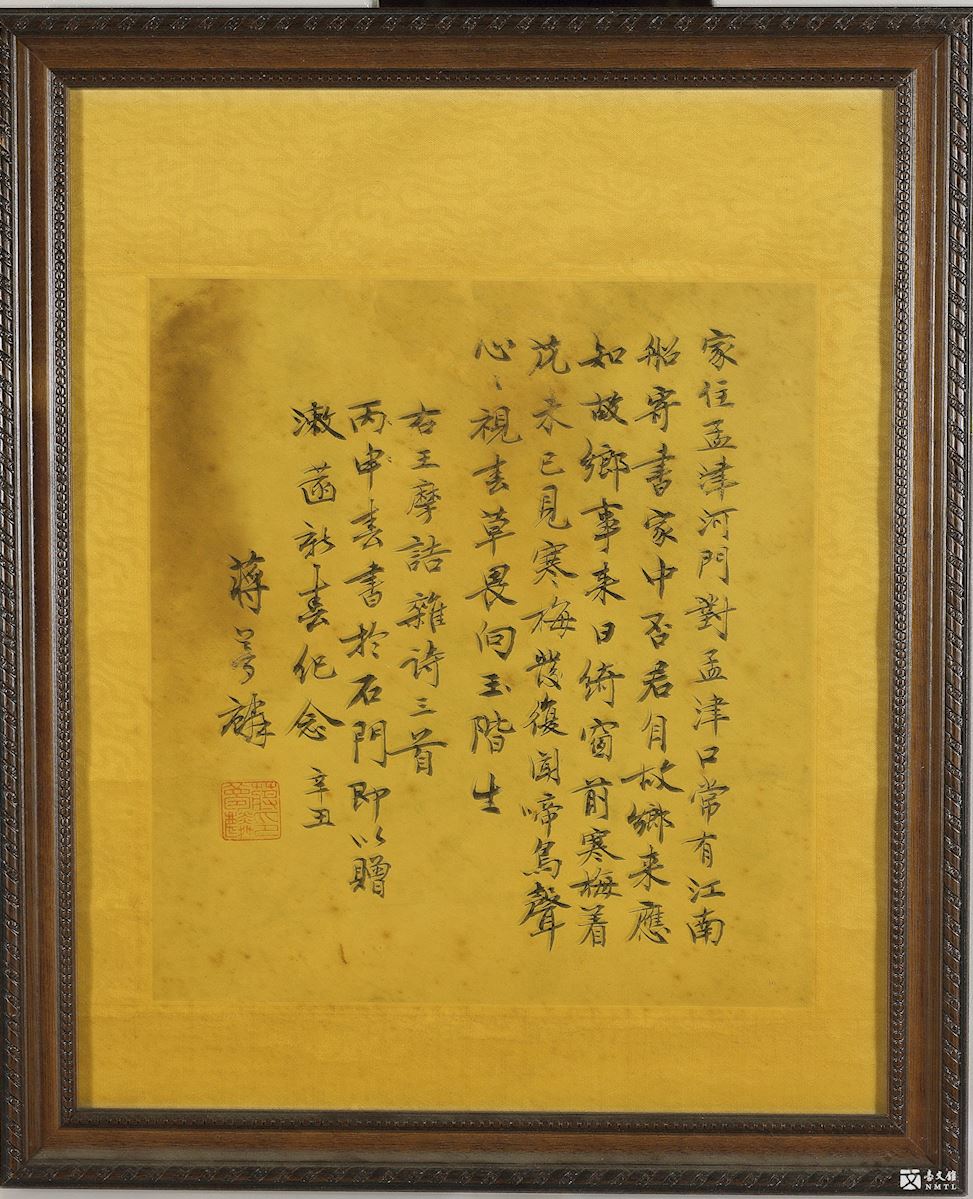 家住孟津河門對孟津口常有江南
船寄書家中否君自故鄉来應
知故鄉事来日綺窗前寒梅着
花未已見寒梅發復聞啼鳥聲
心〻視春草畏向玉階生
右王摩詰雜詩三首
丙申春書於石門即以贈
漱菡新春紀念 辛丑
蔣夢麟
台文館
NMTL